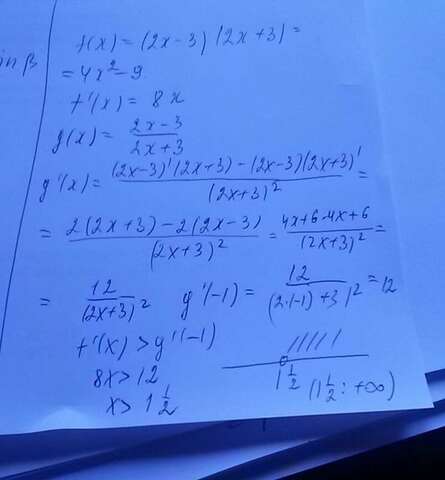 in β
f(x) = (2x-3)(2x+3) =
= 4x²-9
f'(x) = 8x
g(x) = (2x-3)/(2x+3)
g'(x) = ((2x-3)'(2x+3) - (2x-3)(2x+3)')/(2x+3)² =
= (2(2x+3) - 2(2x-3))/(2x+3)² = (4x+6-4x+6)/(2x+3)² =
= 12/(2x+3)² g'(-1) = 12/(2·(-1)+3)² = 12
f'(x) > g'(-1)
8x > 12
x > 1 1/2
1 1/2 (1 1/2; +∞)